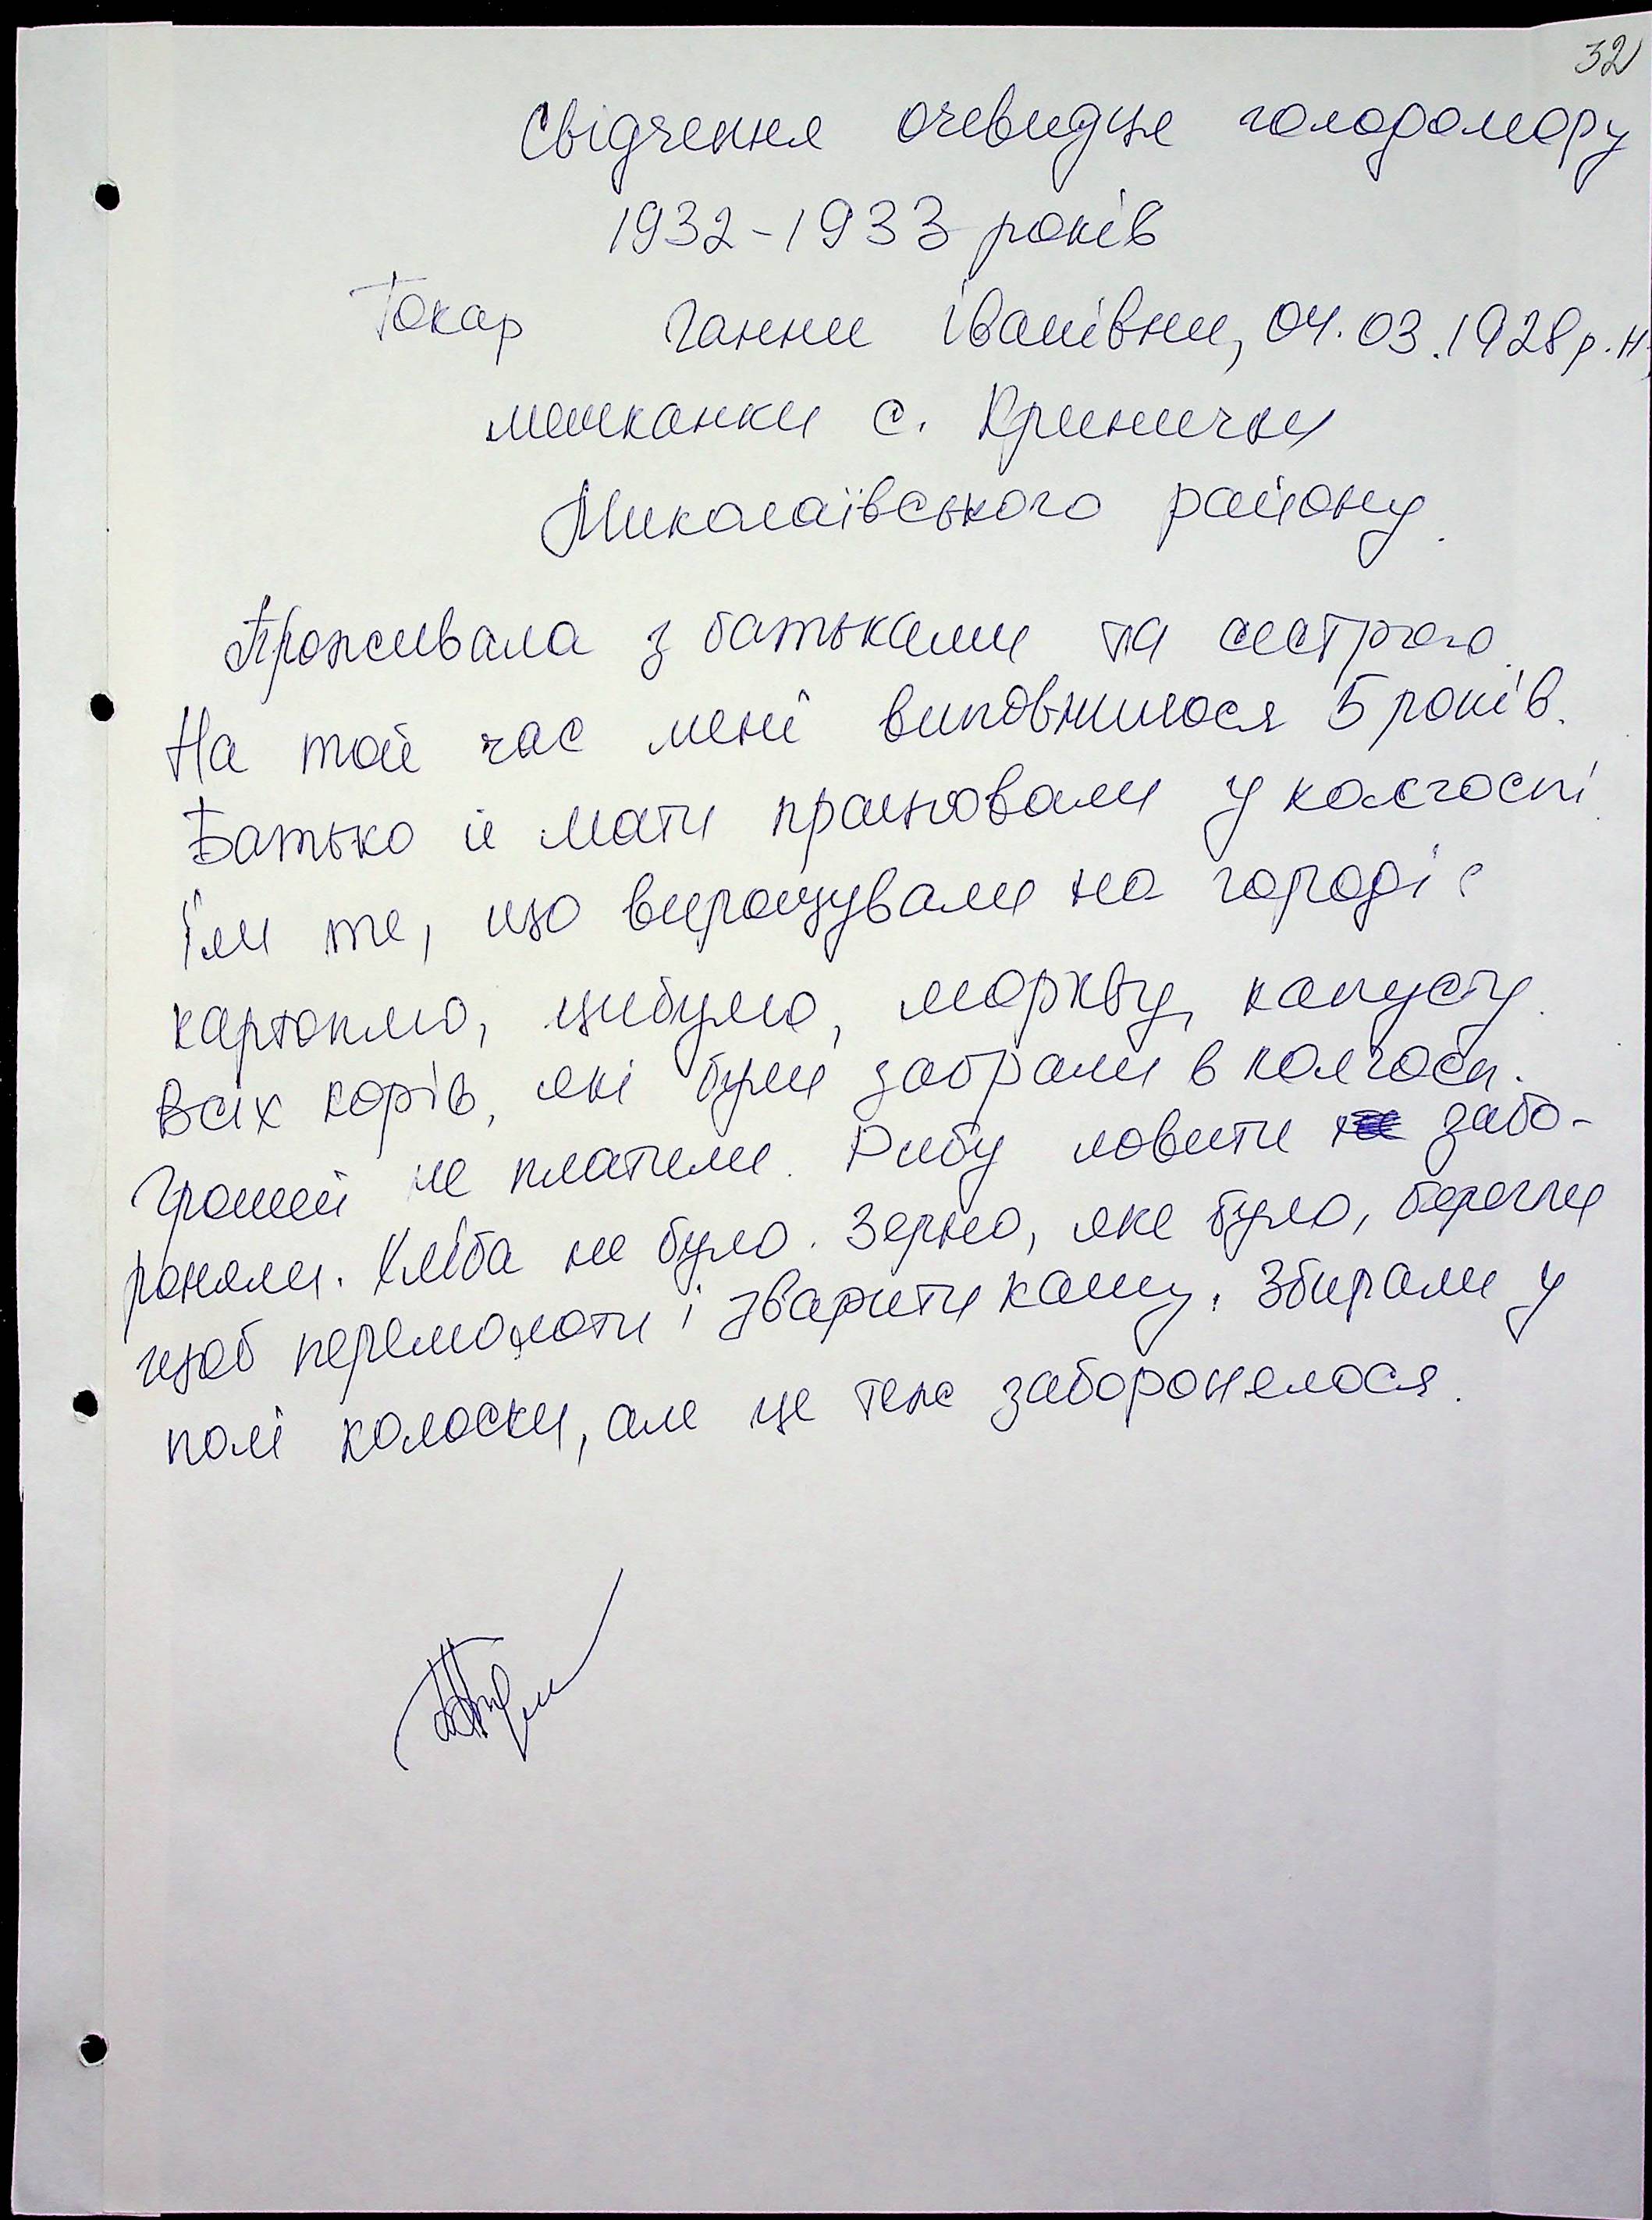 32
Свідчення очевидця голодомору
1932-1933 років
Токар Ганни Іванівни, 04.03.1928 р.н,
мешканки с. Кринички
Миколаївського району.
Проживала з батьками та сестрою.
На той час мені виповнилося 5 років.
Батько й мати працювали у колгоспі.
Їли те, що вирощували на городі:
картоплю, цибулю, моркву, капусту.
Всіх корів, які були забрали в колгосп.
Грошей не платили. Рибу ловити забо-
роняли. Хліба не було. Зерно, яке було, берегли
щоб перемолоти і зварити кашу. Збирали у
полі колоски, але це теж заборонялося.